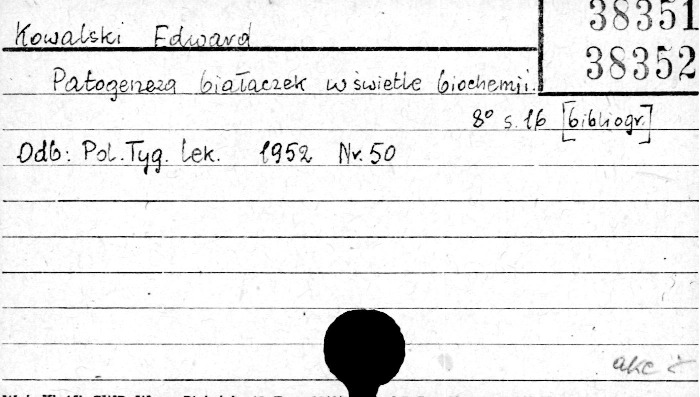 38351
Kowalski Edward
38352
Patogeneza białaczek w świetle biochemji.
8° s. 16 [bibliogr.]
Odb: Pol. Tyg. lek. 1952 Nr. 50
akc